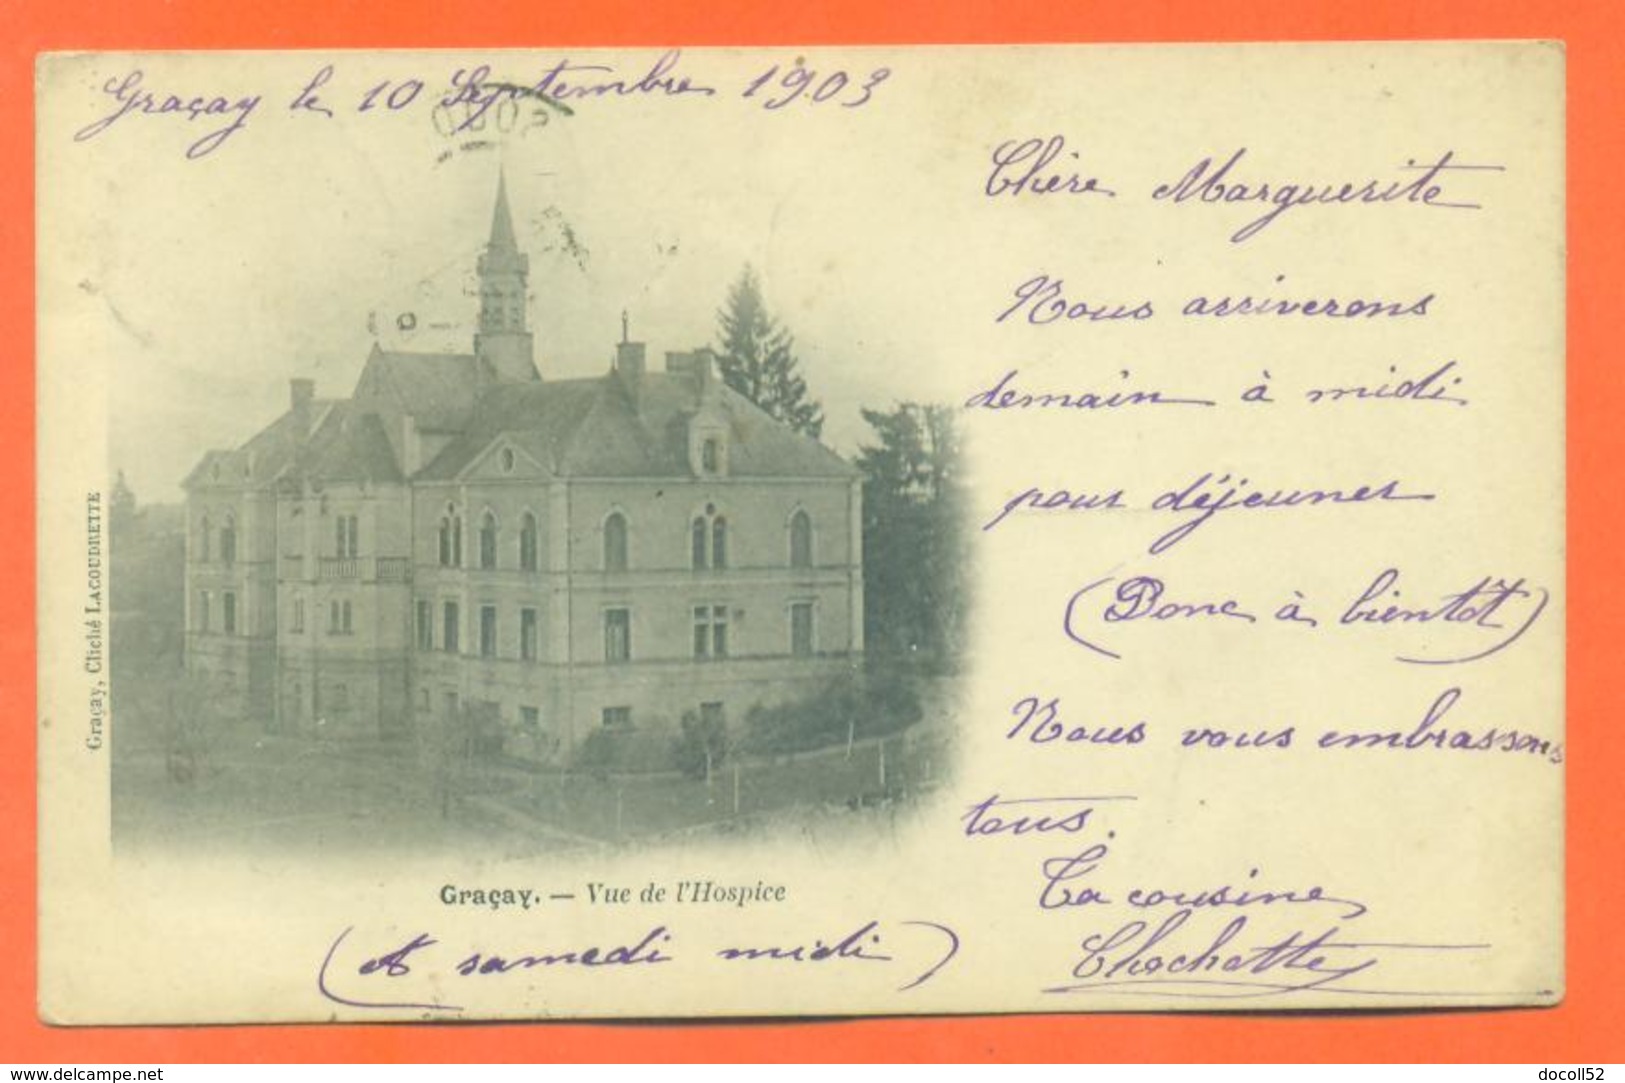 Graçay le 10 Septembre 1903
Chère Marguerite
Nous arriverons
demain à midi
pour déjeuner
(Donc à bientôt)
Nous vous embrassons
tous.
Ta cousine
Chochotte
Graçay, Cliché LACOUDRETTE
Graçay. — Vue de l'Hospice
(A samedi midi)
www.delcampe.net
docoll52